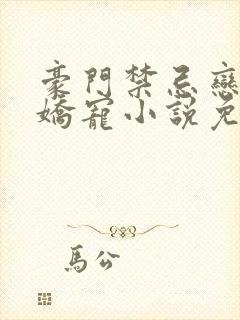 豪門禁忌戀
嬌寵小說免
馬公